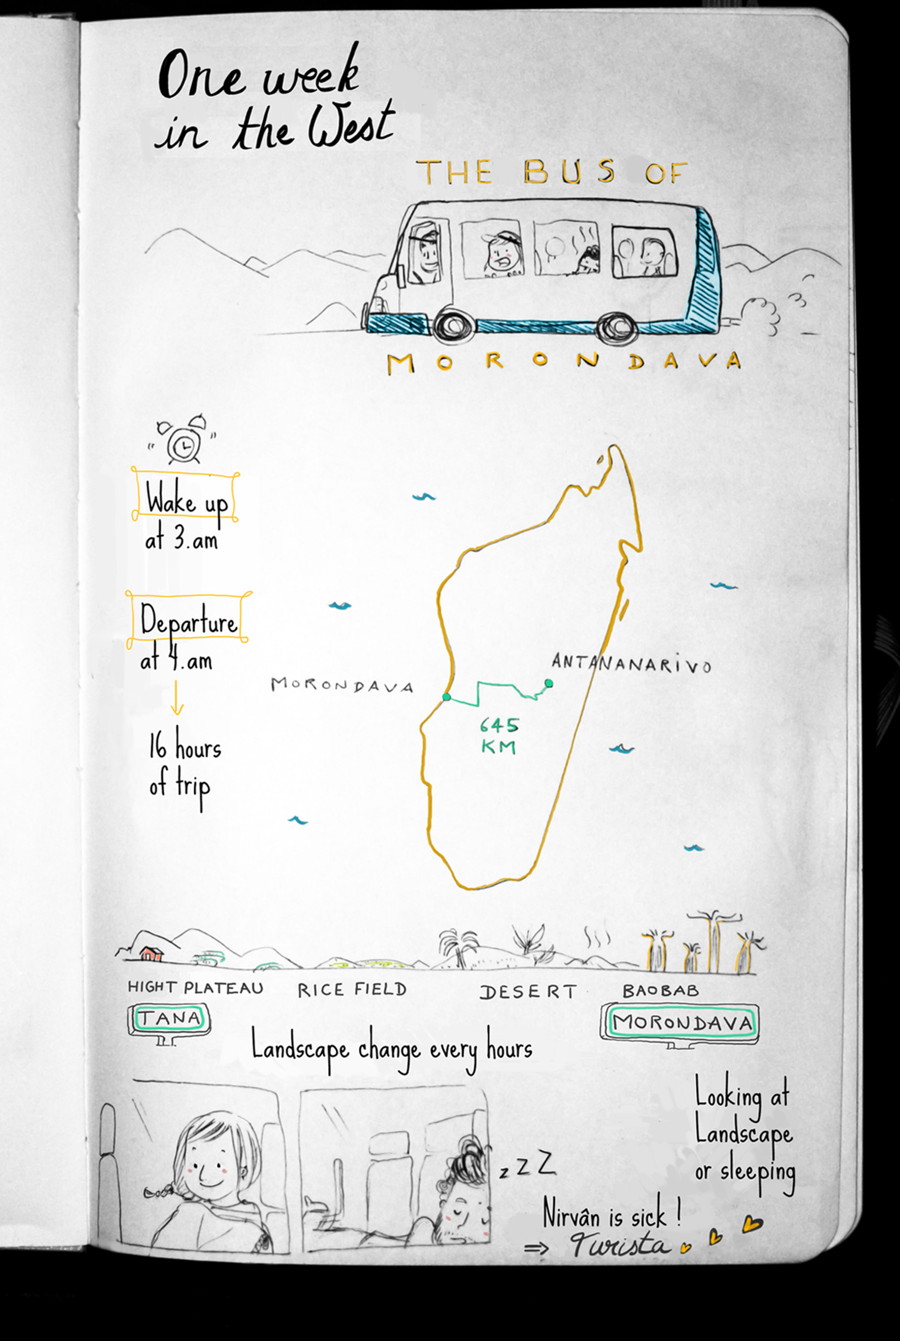 One week
in the West
THE BUS OF
MORONDAVA
Wake up
at 3.am
Departure
at 4.am
16 hours
of trip
MORONDAVA
ANTANANARIVO
645
KM
HIGHT PLATEAU
RICE FIELD
DESERT
BAOBAB
TANA
MORONDAVA
Landscape change every hours
Looking at
Landscape
or sleeping
zZZ
Nirvân is sick !
⇒ Turista